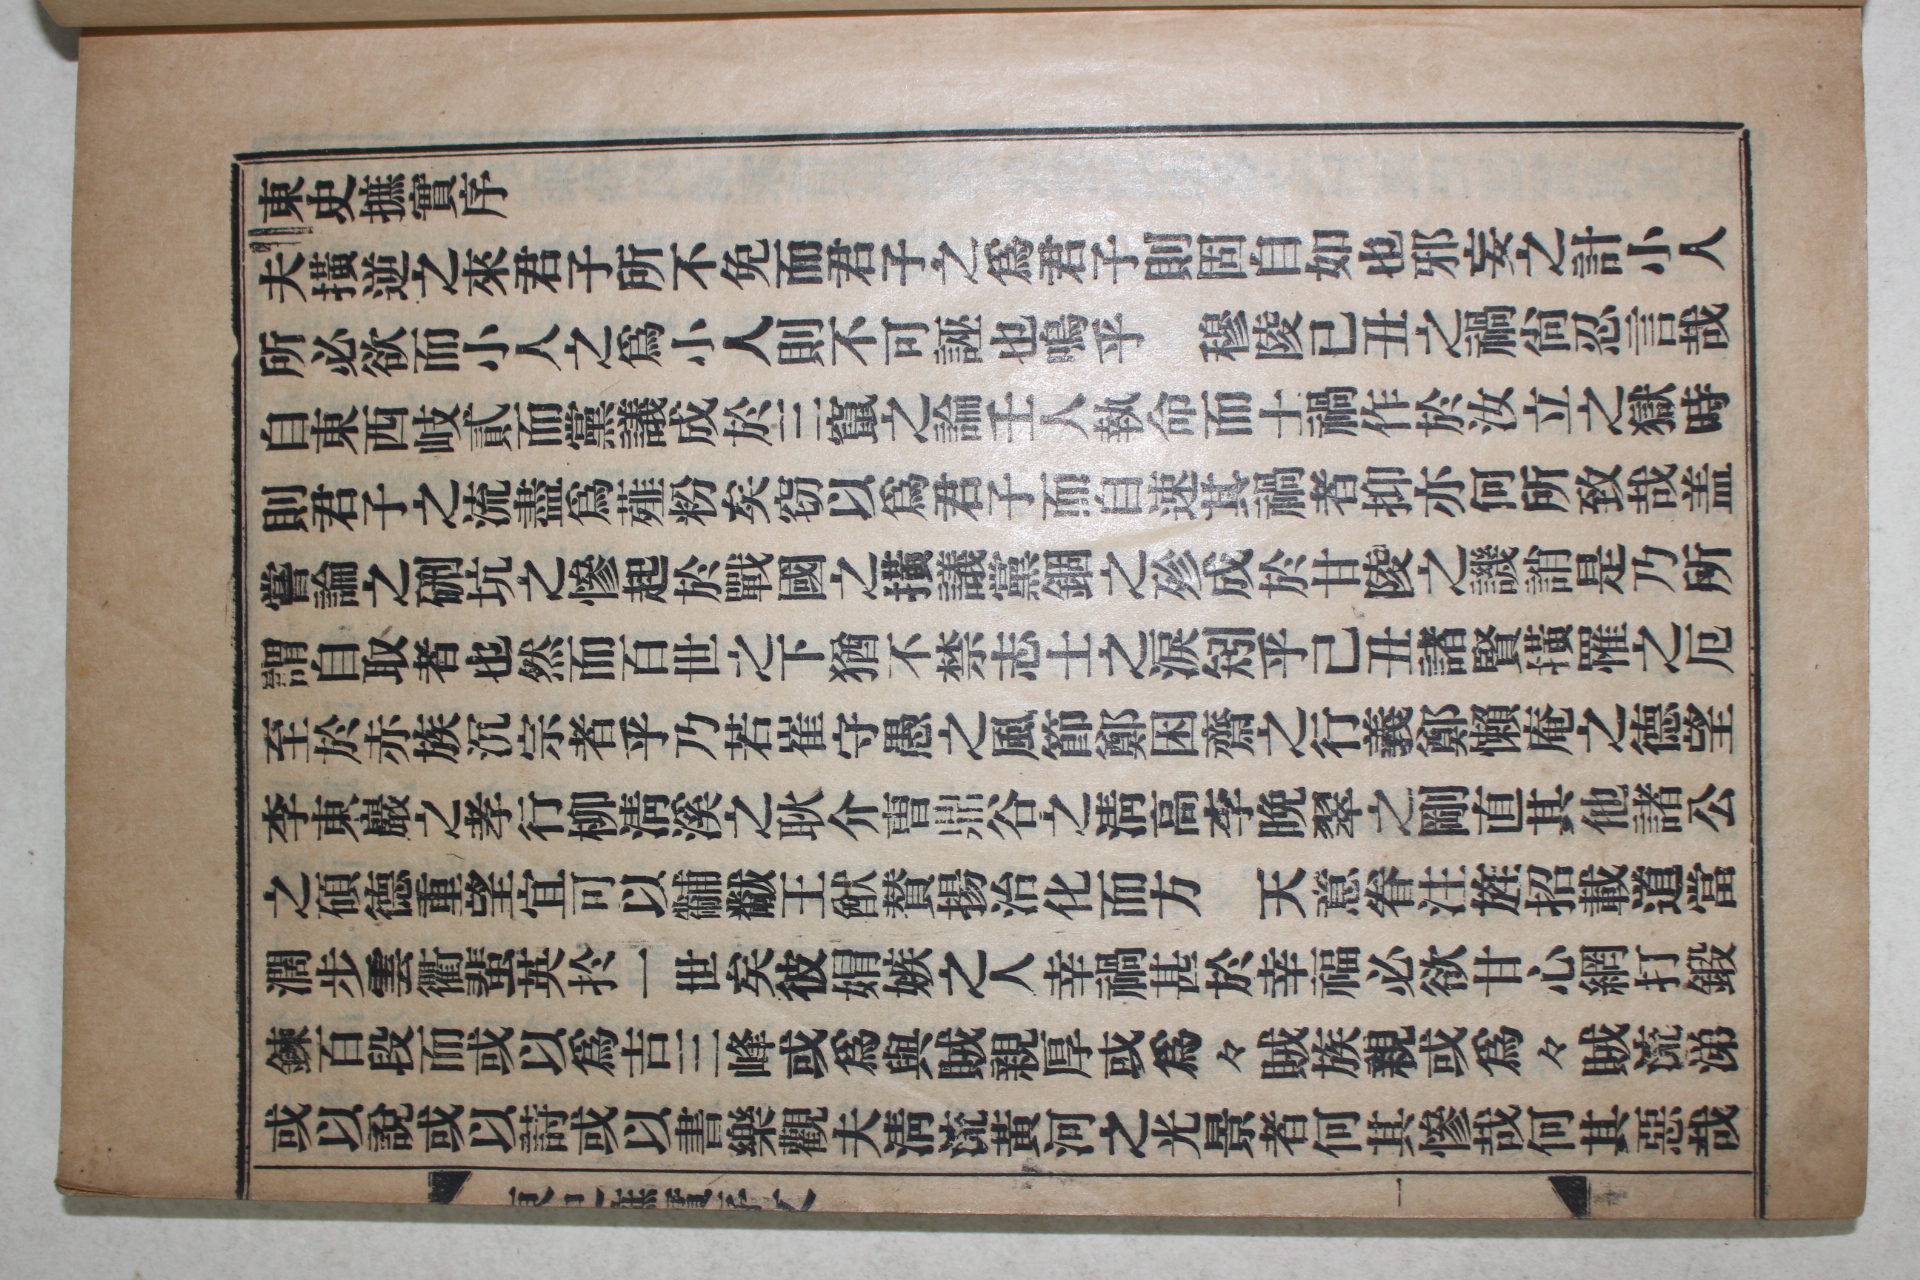 東史摭實序
夫橫逆之來君子所不免而君子之爲君子則固自如也邪妄之計小人
所必欲而小人之爲小人則不可誣也嗚乎　穆陵已丑之禍尙忍言哉
自東西岐貳而黨議成於三竄之論壬人執命而士禍作於汝立之獄時
則君子之流盡爲薤粉矣窃以爲君子而自速其禍者抑亦何所致哉盖
嘗論之硎坑之慘起於戰國之橫議黨錮之殄成於甘陵之譏誚是乃所
謂自取者也然而百世之下猶不禁志士之淚矧乎己丑諸賢橫罹之厄
至於赤族沉宗者乎乃若崔守愚之風節鄭困齋之行義鄭懶庵之德望
李東巖之孝行柳淸溪之耿介曺鼎谷之淸高李晚翠之剛直其他諸公
之碩德重望宜可以黼黻王猷賛揚治化而方　天意眷注旌招載道當
濶步雲衢蜚英於一世矣彼媢嫉之人幸禍甚於幸福必欲甘心網打鍛
鍊百段而或以爲吉三峰或爲與賊親厚或爲々賊族親或爲々賊流涕
或以說或以詩或以書樂觀夫淸流黃河之光景者何其慘哉何其惡哉
東史摭實序文
一